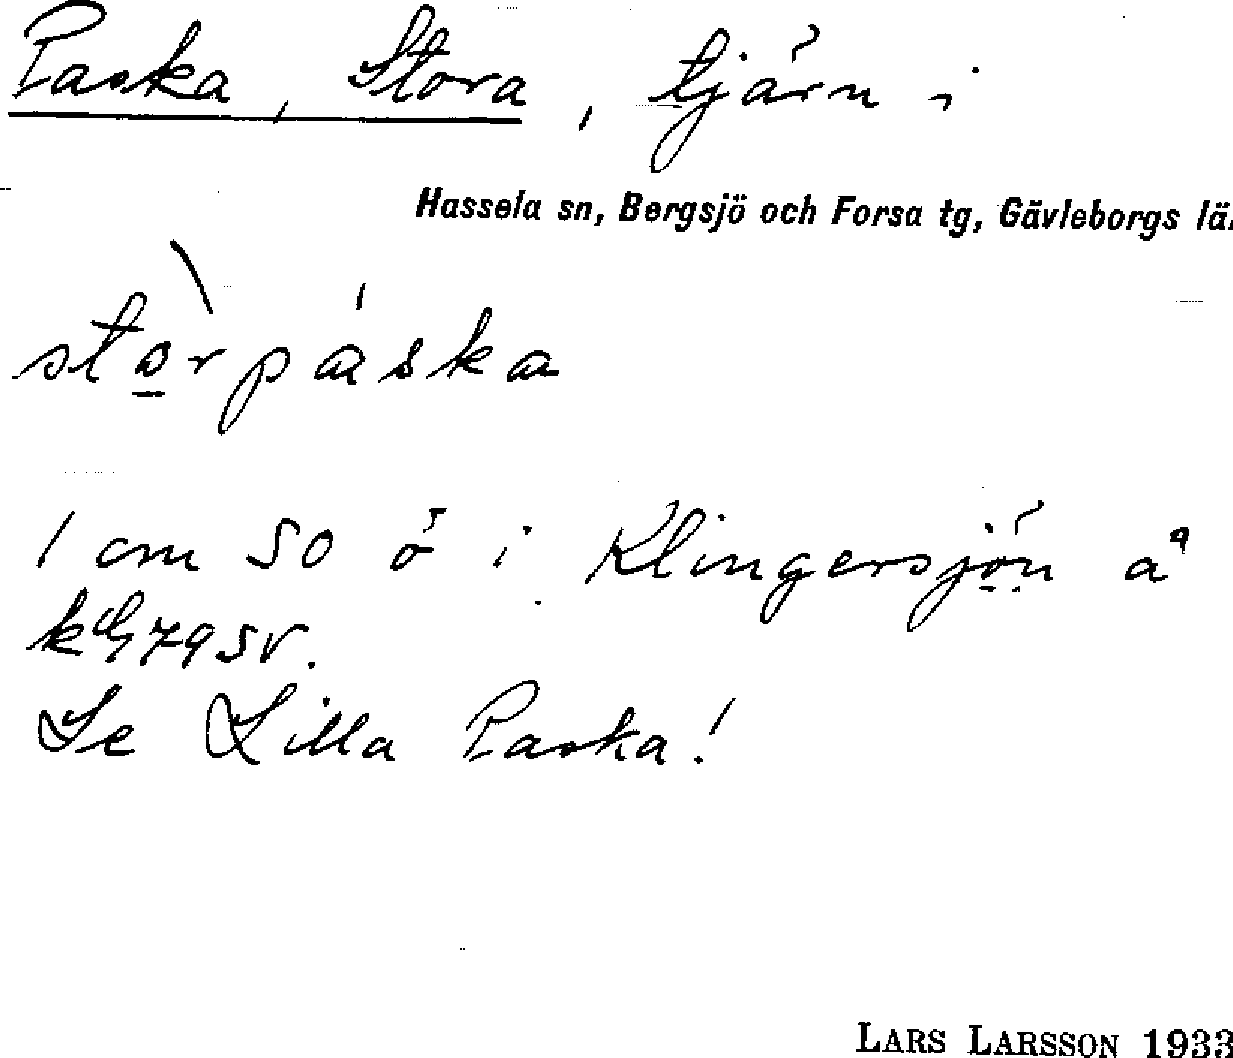 Paska, Stora, tjärn i
Hassela sn, Bergsjö och Forsa tg, Gävleborgs lä
stòrpáska
1 cm SO ö i Klingersjön å
kbl 79 SV.
Se Lilla Paska!
LARS LARSSON 1933